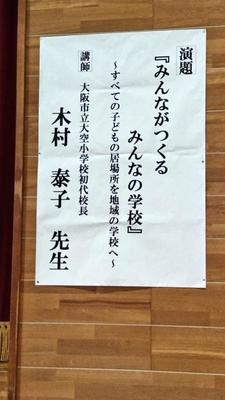 演題
『みんながつくる
みんなの学校』
～すべての子どもの居場所を地域の学校へ～
講師 大阪市立大空小学校初代校長
木村 泰子 先生